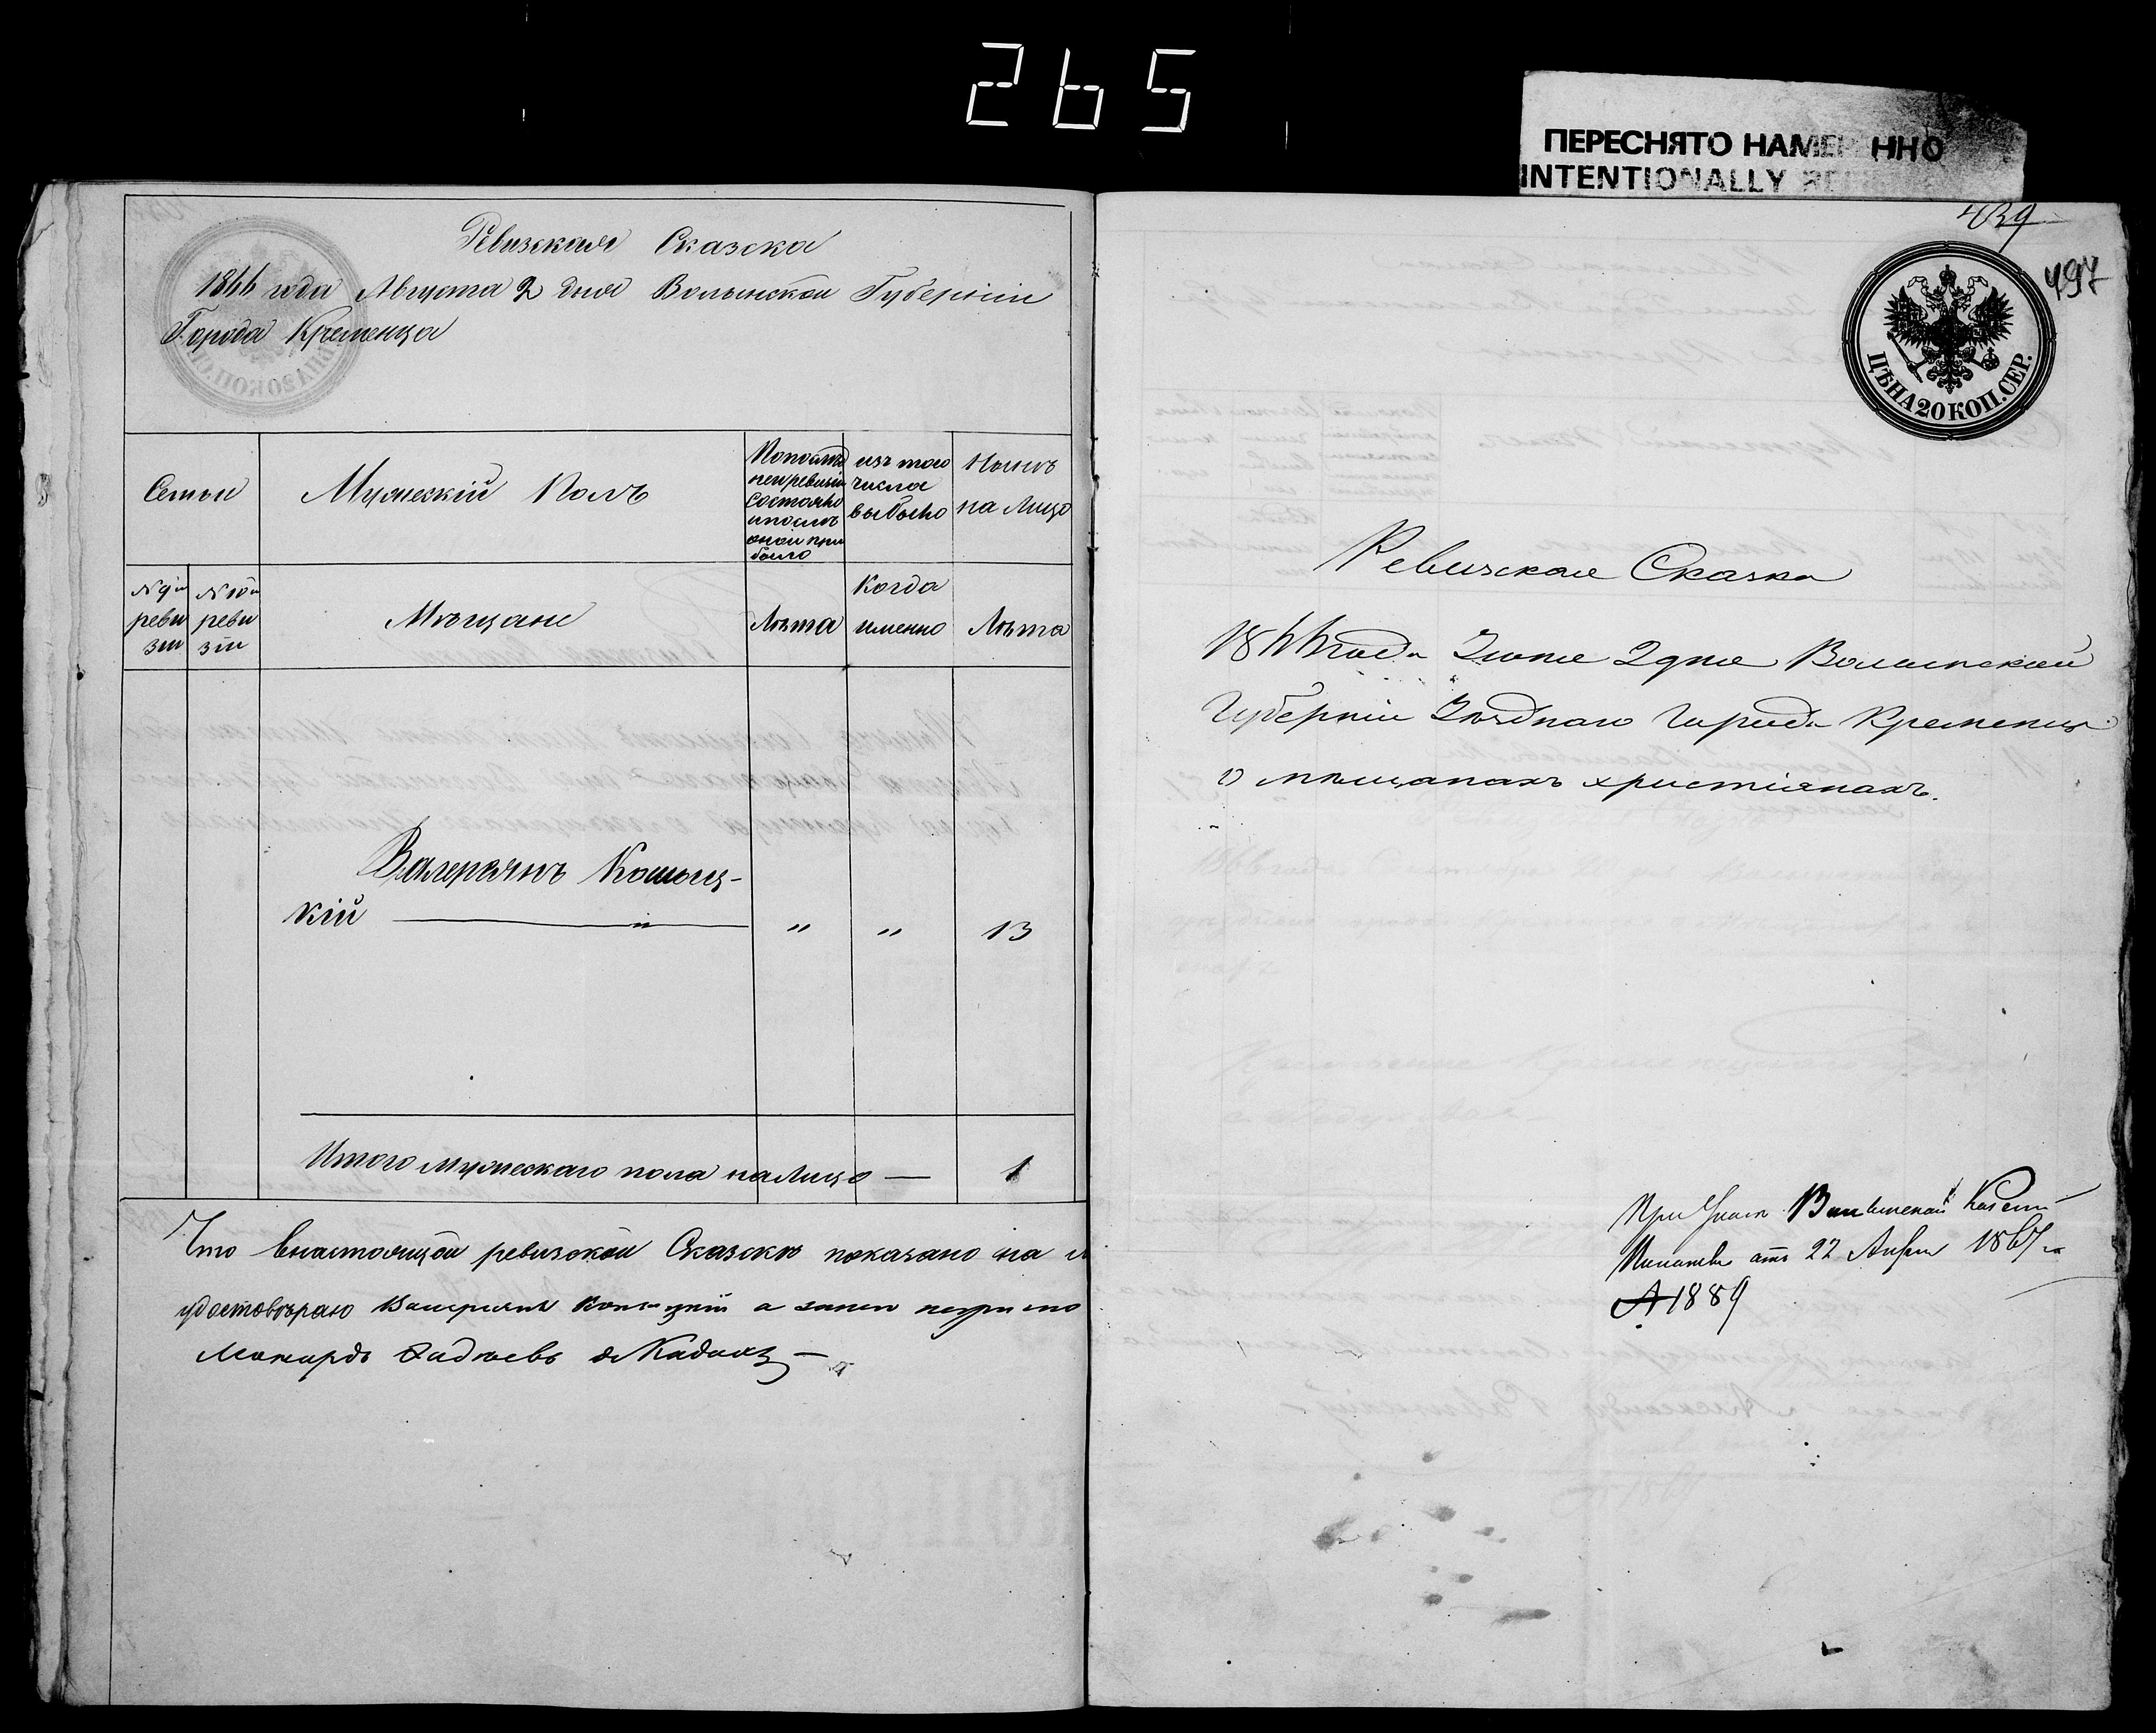 265
ПЕРЕСНЯТО НАМЕРЕННО
INTENTIONALLY
Ревизская Сказска
1866 года Августа 2 дня Волынской Губерніи
Города Кременца
Семьи
Мужескій Полъ
По последней ревизіи состояло и после оной прибыло
изъ того числа выбыло
Ныне на Лицо
№ 9й ревизіи
№ 10й ревизіи
Мѣщане
Лѣта
Когда именно
Лѣта
Валерьянъ Кошыц-
кій — " — " " 13
Итого мужескаго пола на Лицо — 1
Что внастоящой ревизской Сказскѣ показано на
удостовѣраю Валериянъ а
439
497
ЦѢНА 20 КОП. СЕР.
Ревизская Сказка
1866 года Іюня 2 дня Волынской
Губерніи Уѣзднаго Города Кременца
о мѣщанахъ христіянахъ.
При Указѣ Волынской Казен
Палаты отъ 22 Апрѣля 1867 г
№ 1889